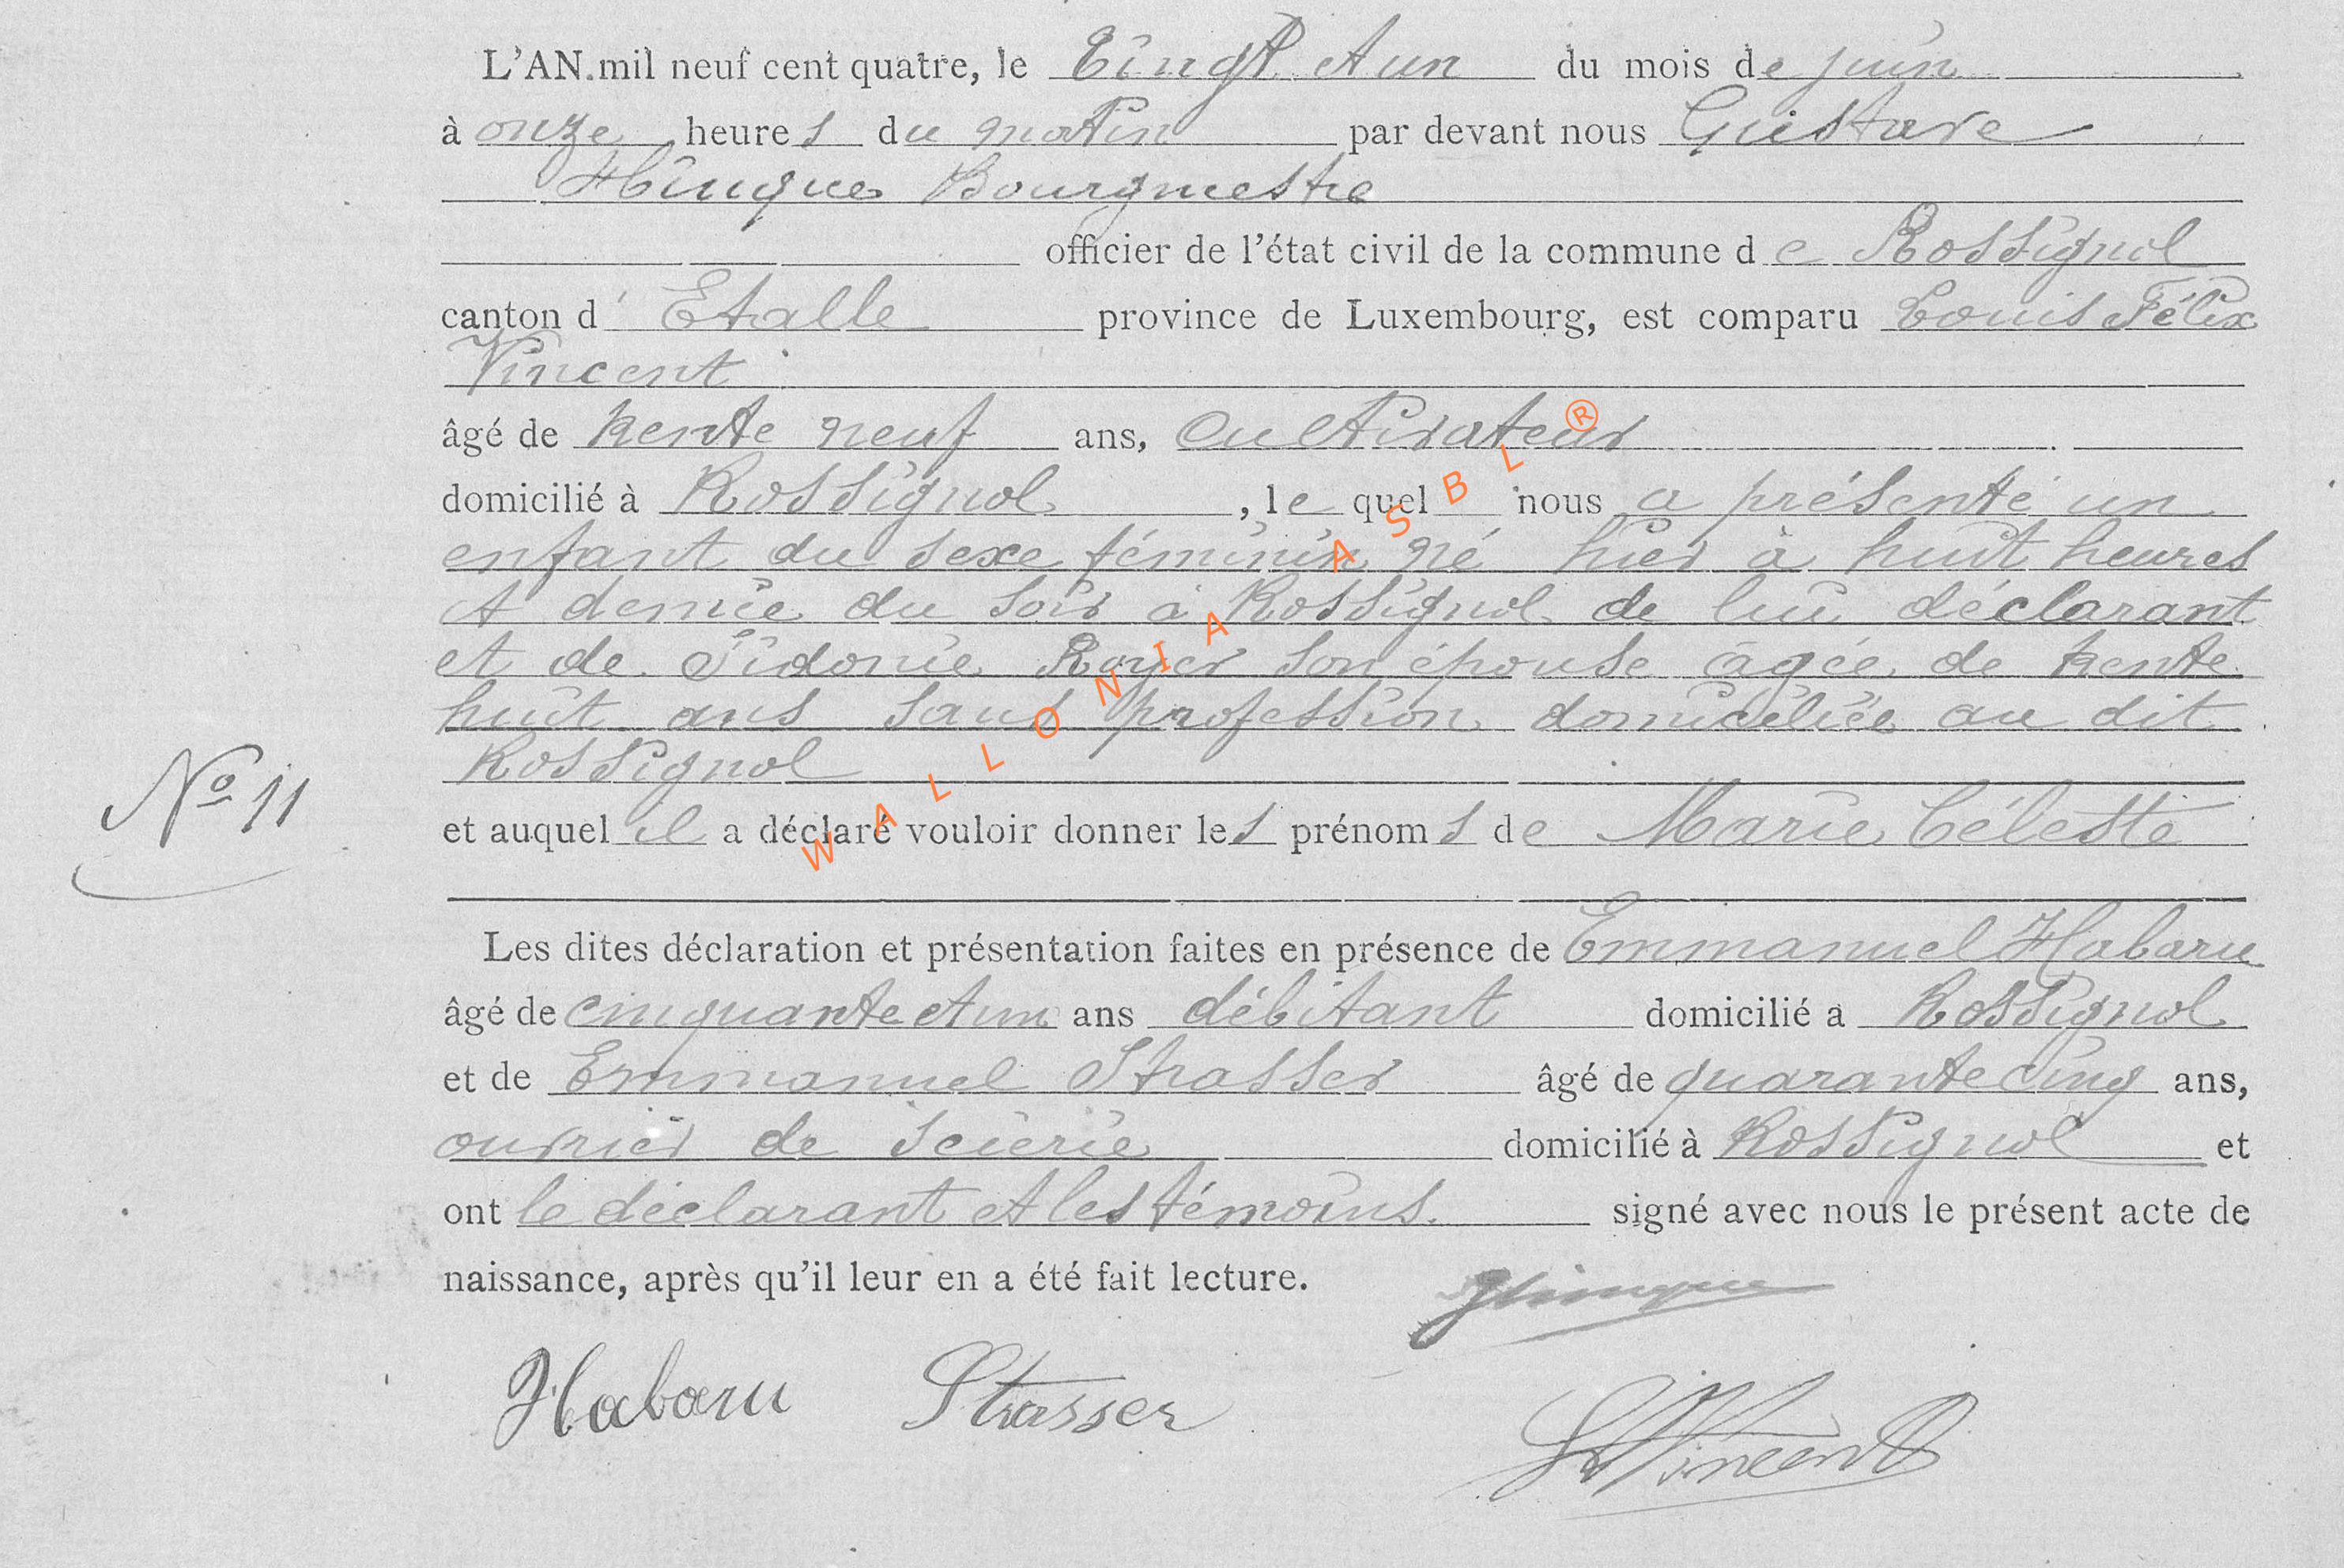 L'AN mil neuf cent quatre, le Vingt et un du mois de juin
à onze heures du matin par devant nous Gustave
Hinque Bourgmestre
officier de l'état civil de la commune de Rossignol
canton d' Etalle province de Luxembourg, est comparu Louis Félix
Vincent
âgé de trente neuf ans, Cultivateur
domicilié à Rossignol, le quel nous a présenté un
enfant du sexe féminin né hier à huit heures
et demie du soir à Rossignol de lui déclarant
et de Sidonie Royer son épouse âgée de trente
huit ans sans profession domiciliée au dit
Rossignol
No 11
et auquel il a déclaré vouloir donner les prénoms de Marie Céleste
Les dites déclaration et présentation faites en présence de Emmanuel Habaru
âgé de cinquante et un ans débitant domicilié a Rossignol
et de Emmanuel Strasser âgé de quarante cinq ans,
ouvrier de scierie domicilié à Rossignol et
ont le déclarant et les témoins. signé avec nous le présent acte de
naissance, après qu'il leur en a été fait lecture.
GHinque
Habaru Strasser
LVincent
WALLONIA ASBL ®